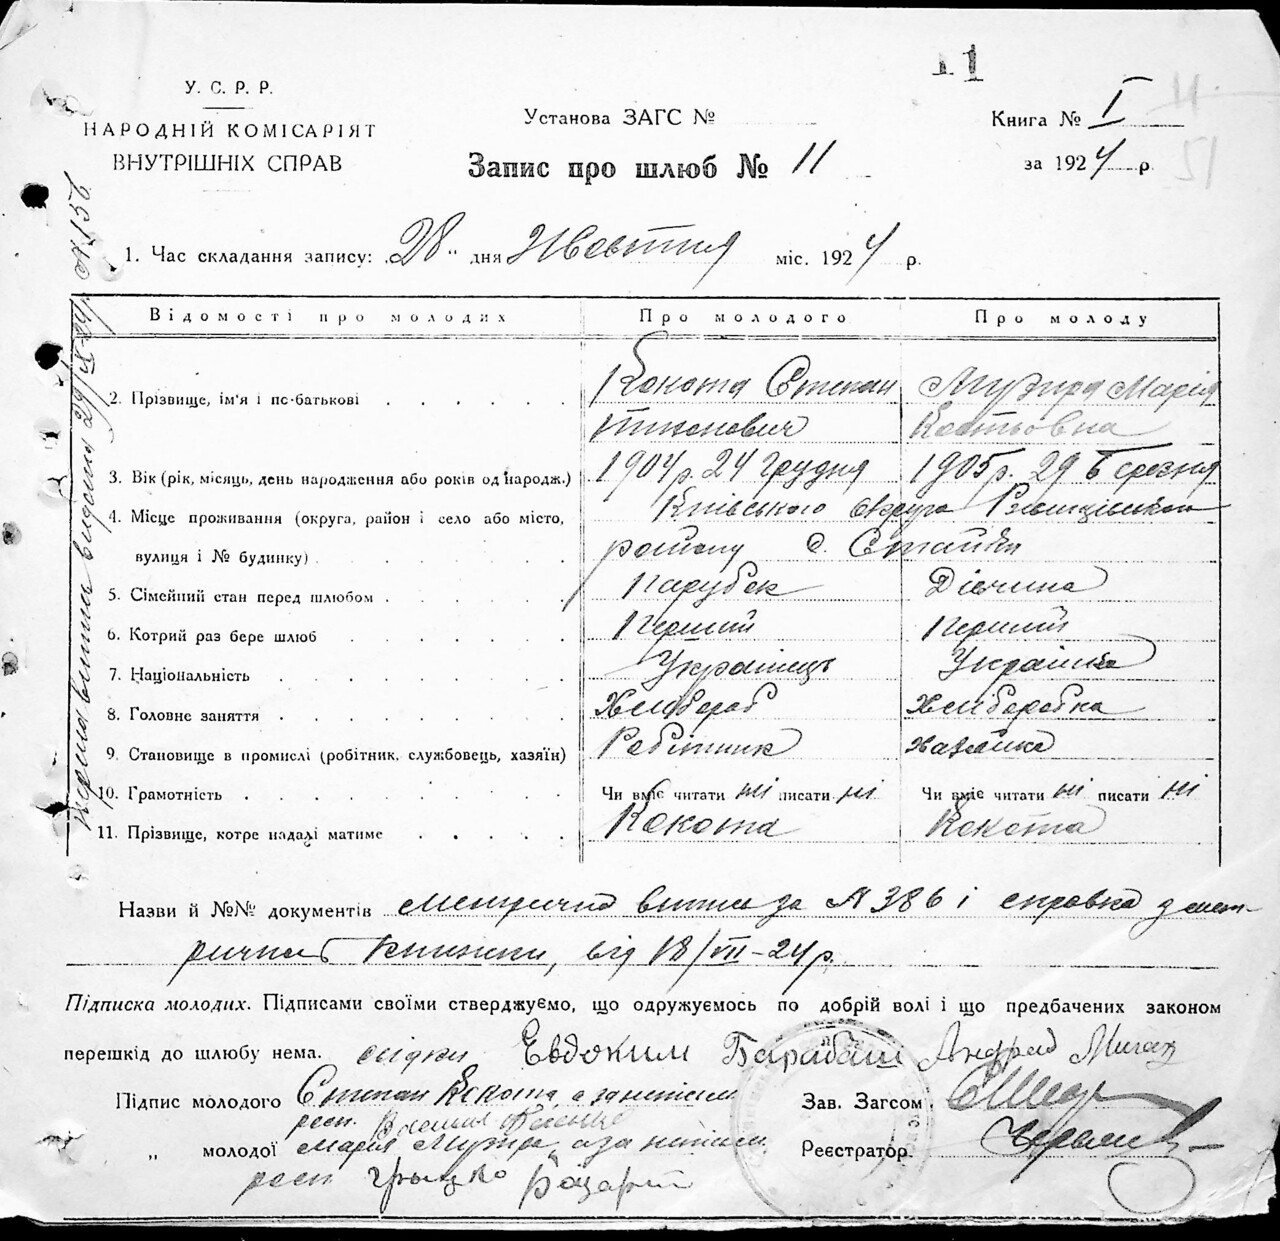 11
У. С. Р. Р.
НАРОДНІЙ КОМІСАРІЯТ
ВНУТРІШНІХ СПРАВ
Установа ЗАГС №
Запис про шлюб № 11
Книга № I
за 1924 р.
1. Час складання запису: „28" дня Жовтня міс. 1924 р.
Відомості про молодих Про молодого Про молоду
2. Прізвище, ім'я і по-батькові
Кокота Степан
Тихонович
Музира Марія
Костьовна
3. Вік (рік, місяць, день народження або років од народж.) 1904 р. 24 Грудня 1905 р. 29 Березня
4. Місце проживання (округа, район і село або місто, Київського округа
вулиця і № будинку) району с. Стайки
5. Сімейний стан перед шлюбом Парубек Дівчина
6. Котрий раз бере шлюб Перший Перший
7. Національність Українець Українка
8. Головне заняття Хлібороб Хлиборобка
9. Становище в промислі (робітник, службовець, хазяїн) Робітник хазяйка
10. Грамотність Чи вміє читати ні писати ні Чи вміє читати ні писати ні
11. Прізвище, котре надалі матиме Кокота Кокота
Назви й №№ документів метрична витись за № 386 і справка з мет-
ричних книжки, від 18/VII-24 р.
Підписка молодих. Підписами своїми стверджуємо, що одружуємось по добрій волі і що предбачених законом
перешкід до шлюбу нема. свідки Евдоким Барабаш Андрей
Підпис молодого Степан Кокота, а за
Зав. Загсом
„ молодої Мария
Реєстратор.
рост Грыцко